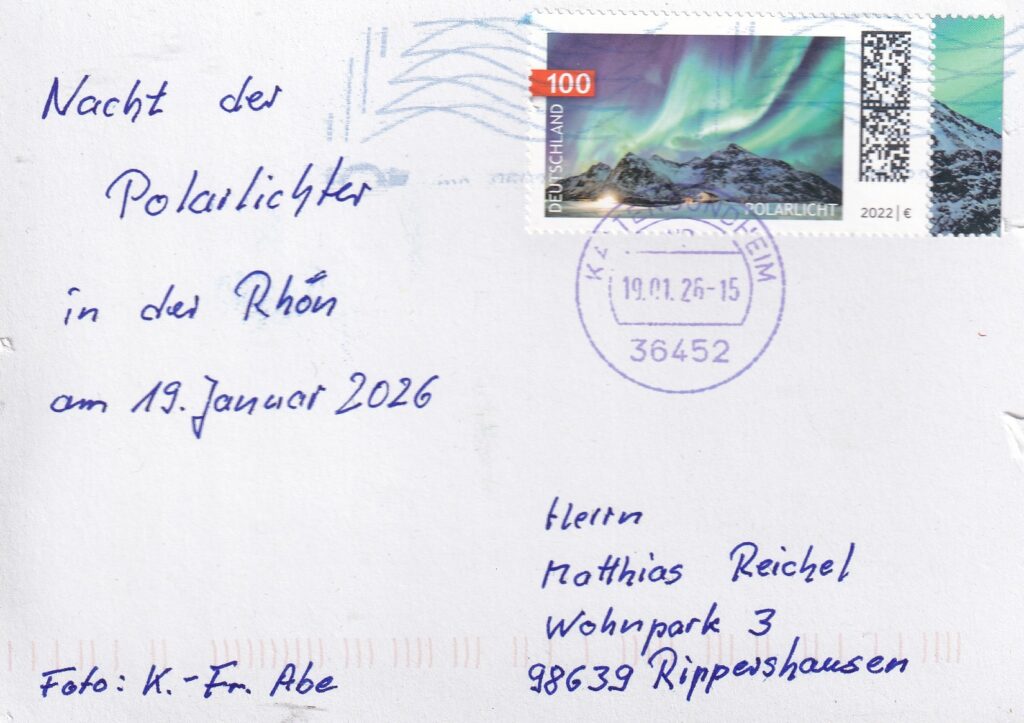 Nacht der
Polarlichter
in der Rhön
am 19. Januar 2026
Foto: K.-Fr. Abe
100
DEUTSCHLAND
POLARLICHT
2022 | €
19.01.26-15
36452
Herrn
Matthias Reichel
Wohnpark 3
98639 Rippershausen